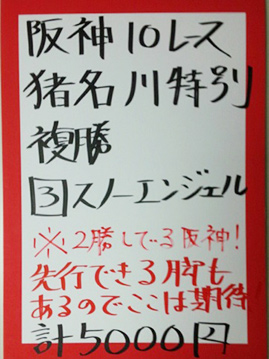 阪神10レース
猪名川特別
複勝
3スノーエンジェル
※2勝してる阪神!
先行できる脚も
あるのでここは期待
計5000円